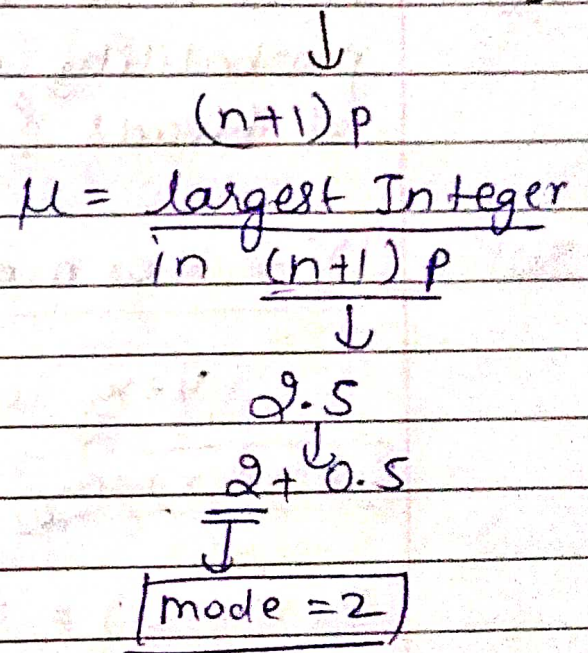 (n+1) p
μ = largest Integer
in (n+1) p
2.5
2 + 0.5
mode = 2